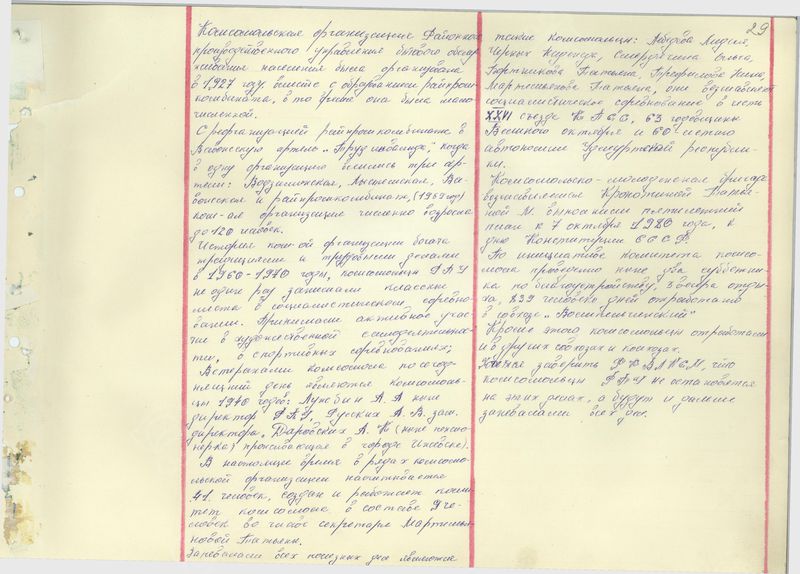 29
Комсомольская организация Районного
производственного управления бытового обслу-
живания населения была организована
в 1927 году, вместе с образованием райпром-
комбината, в то время она была мало-
численной.
С реорганизацией райпромкомбината в
Вавожскую артель "Труд инвалида", когда
в одну организацию влились три ар-
тели: Водзимонская, Вави-
вожская и райпромкомбинат, (1959 году)
ком-ая организация численно возросла
до 120 человек.
История ком-ой организации богата
традициями и трудовыми делами
в 1960-1970 годы, комсомольцы РПУ
не один раз занимали классные
места в социалистическом соревно-
вании. Принимали активное учас-
тие в художественной самодеятельнос-
ти, в спортивных соревнованиях;
Ветеранами комсомола по сегод-
няшний день являются комсомоль-
цы 1940 годов: А. А ныне
директор РПУ, Русских А. В. зам.
директора, Даровских А. К (ныне пенсио-
нерка) проживающая в городе Ижевске).
В настоящее время в рядах комсомо-
льской организации насчитывается
41. человек, создан и работает коми-
тет комсомола в составе 9 че-
ловек во главе секретаря Мартемья-
новой Татьяны.
Запевалами всех полезных дел являются
такие комсомольцы: Лебедева Лидия,
Черных Надежда, Ольга,
Татьяна, Нина,
Мартемьянова Татьяна, они возглавляют
социалистическое соревнование в честь
XXVI съезда КПСС, 63 годовщины
Великого октября и 60-летию
автономии Удмуртской республи-
ки.
Комсомольско-молодежная бригада
возглавляемая Татья-
ной М. выполнили пятилетний
план к 7 октября 1980 года, к
дню Конституции СССР.
По инициативе комитета комсо-
мола проведено ныне два субботни-
ка по благоустройству, 3 вечера отды-
ха, 839 человеко дней отработали
в совхозе "Вознесенский"
Кроме этого комсомольцы отработали
и в других совхозах и колхозах.
Хочется заверить РК ВЛКСМ, что
комсомольцы РПУ не остановятся
на этих делах, а будут и дальше
запевалами всех дел.